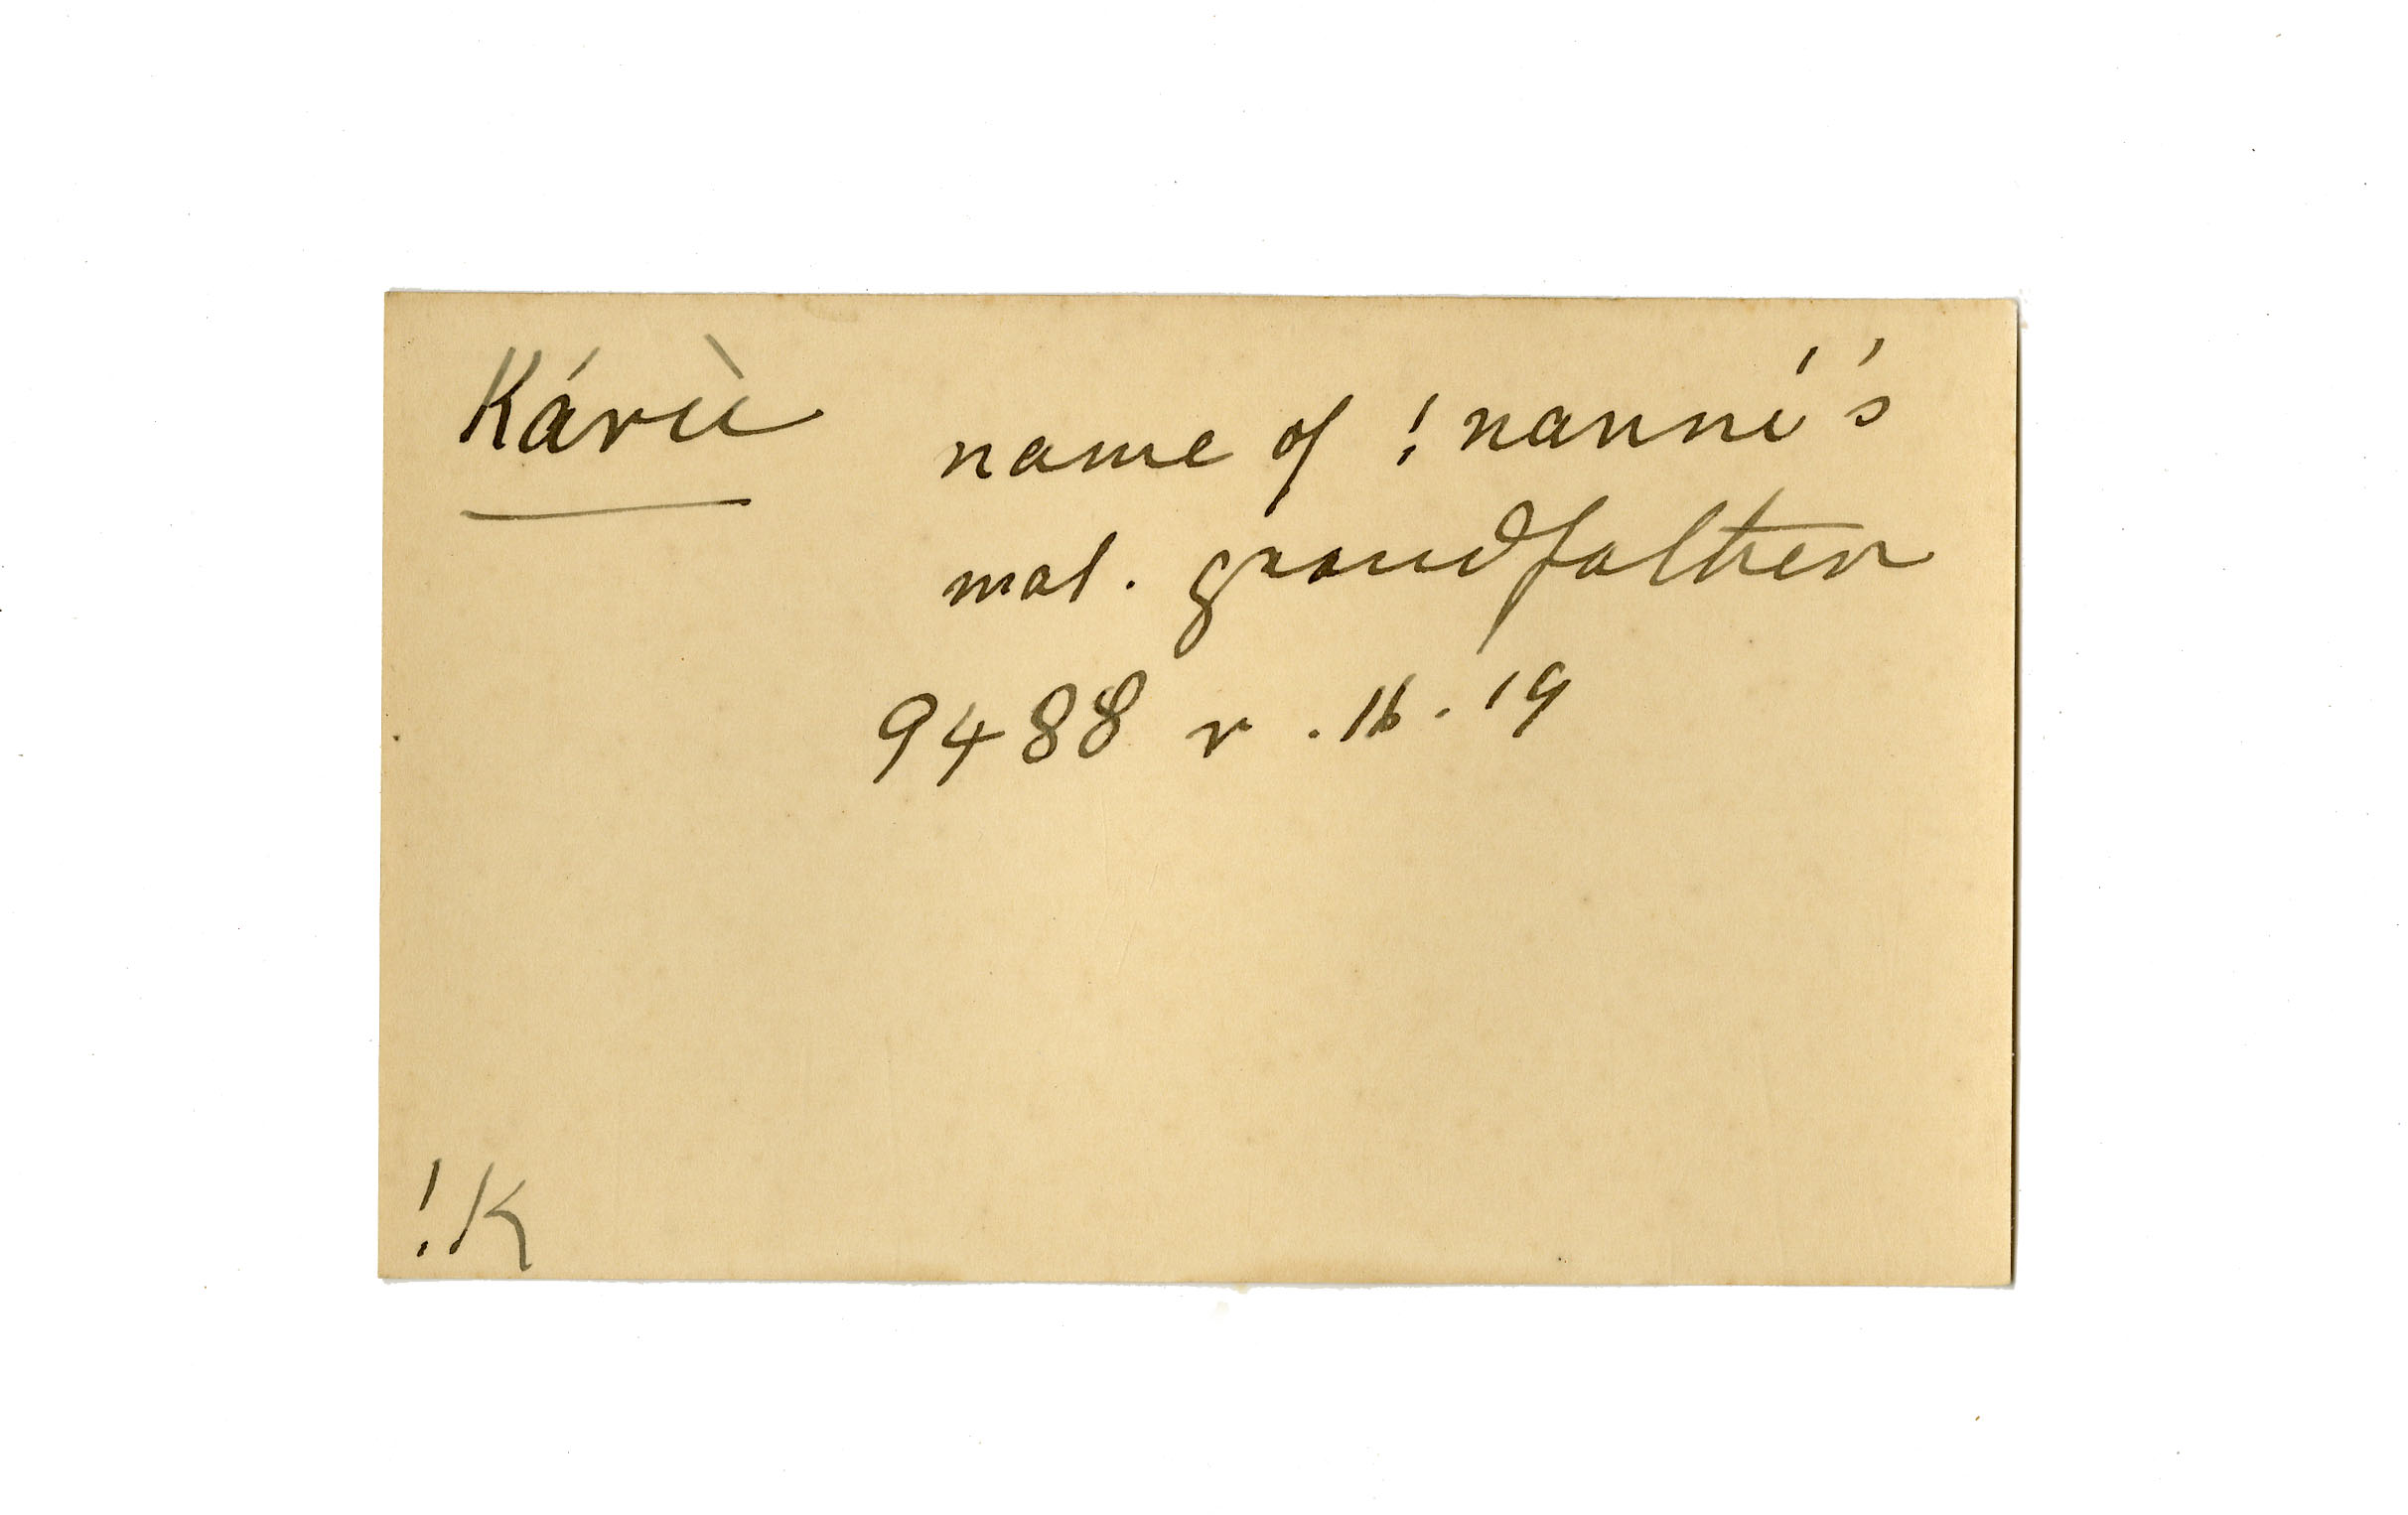 Kárù name of !nanni's
mat. grandfather
9488 r. 16. 19
!K